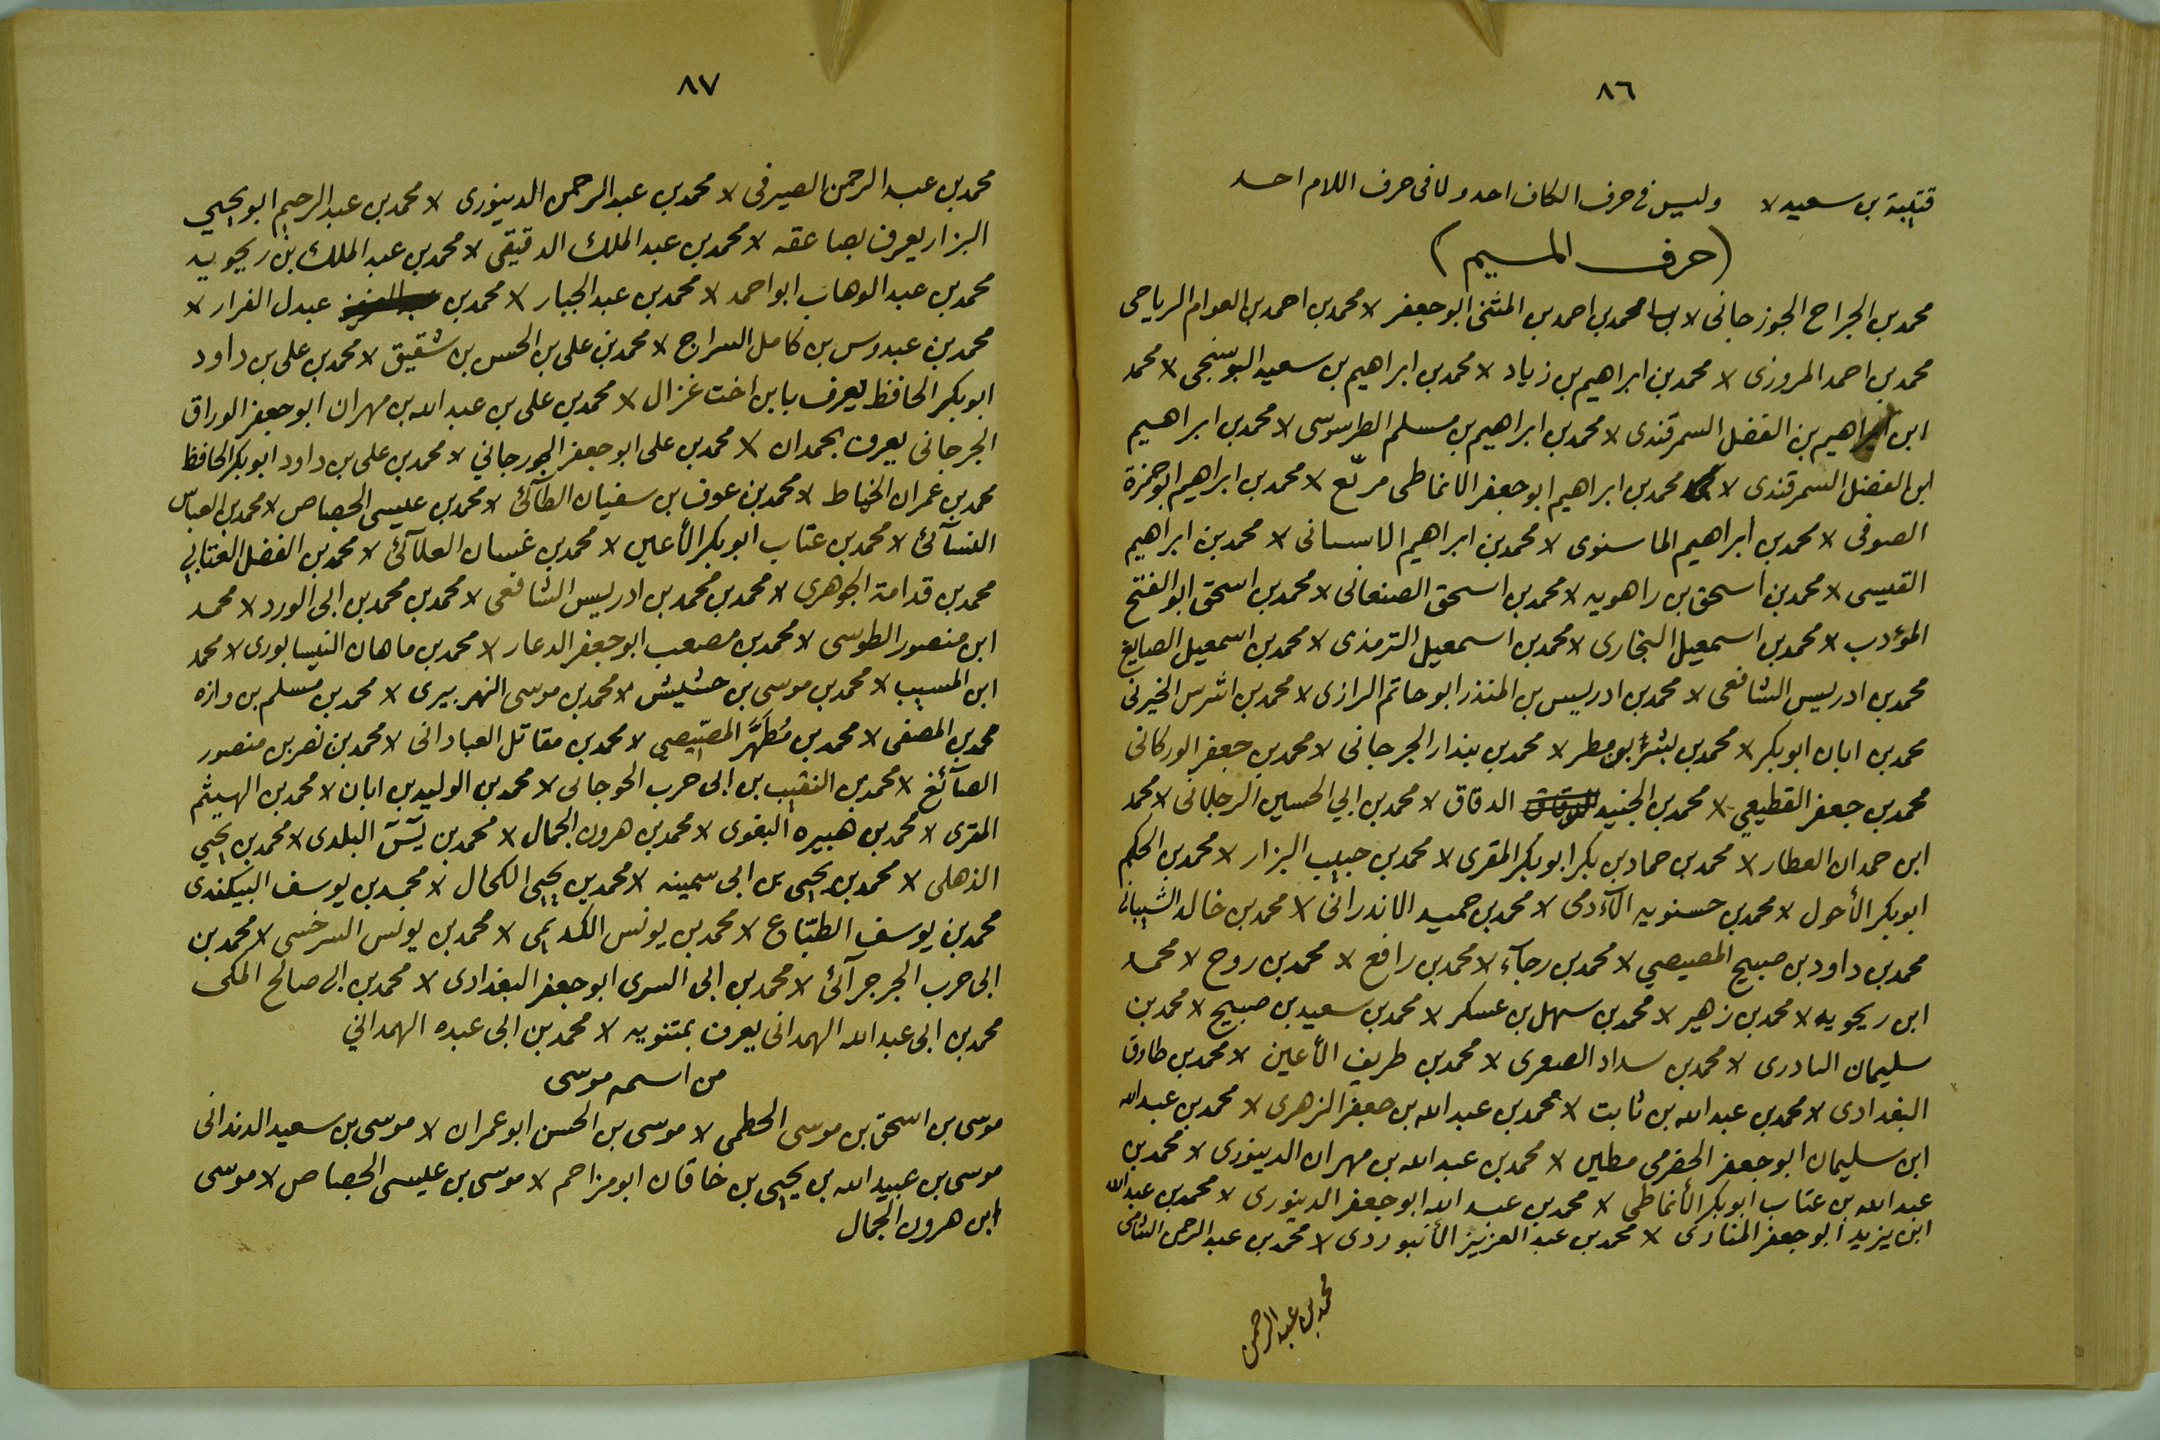 ٨٦
قتيبة بن سعيد لا وليس في حرف الكاف احد ولا في حرف اللام احد
(حرف الميم)
محمد بن الجراح الجوزجانى لا محمد بن احمد بن المثنى ابو جعفر لا محمد بن احمد بن العوام الرياحى
محمد بن احمد المروزى لا محمد بن ابراهيم بن زياد لا محمد بن ابراهيم بن سعيد البوسنجى لا محمد
ابن ابراهيم بن الفضل السمرقندى لا محمد بن ابراهيم بن مسلم الطرسوسى لا محمد بن ابراهيم
ابن الفضل السمرقندى لا محمد بن ابراهيم ابو جعفر الانماطى مربّع لا محمد بن ابراهيم ابو حمزة
الصوفى لا محمد بن ابراهيم الماسنوى لا محمد بن ابراهيم الاسنانى لا محمد بن ابراهيم
القيسى لا محمد بن اسحق بن راهويه لا محمد بن اسحق الصنعانى لا محمد بن اسحق ابو الفتح
المؤدب لا محمد بن اسمعيل البخارى لا محمد بن اسمعيل الترمذى لا محمد بن اسمعيل الصايغ
محمد بن ادريس الشافعى لا محمد بن ادريس بن المنذر ابو حاتم الرازى لا محمد بن اشرس الخيرنى
محمد بن ابان ابو بكر لا محمد بن بشر بن مطر لا محمد بن بندار الجرجانى لا محمد بن جعفر الوركانى
محمد بن جعفر القطيعي لا محمد بن الجنيد الدقاق لا محمد بن ابي الحسين الرجلانى لا محمد
ابن حمدان العطار لا محمد بن حماد بن بكر ابو بكر المقرى لا محمد بن حبيب البزار لا محمد بن الحكم
ابو بكر الأحول لا محمد بن حسنويه الآدمى لا محمد بن حميد الاندرانى لا محمد بن خالد الشيبانى
محمد بن داود بن صبيح المصيصي لا محمد بن رجآء لا محمد بن رافع لا محمد بن روح لا محمد
ابن ريجويه لا محمد بن زهير لا محمد بن سهل بن عسكر لا محمد بن سعيد بن صبيح لا محمد بن
سليمان البادرى لا محمد بن سداد الصعرى لا محمد بن طريف الأعين لا محمد بن طارق
البغدادى لا محمد بن عبد الله بن ثابت لا محمد بن عبد الله بن جعفر الزهرى لا محمد بن عبد الله
ابن سليمان ابو جعفر الحضرمى مطين لا محمد بن عبد الله بن مهران الدينورى لا محمد بن
عبد الله بن عتاب ابو بكر الأنماطى لا محمد بن عبد الله ابو جعفر الدينورى لا محمد بن عبد الله
ابن يزيد ابو جعفر المنادى لا محمد بن عبد العزيز الأنبوردى لا محمد بن عبد الرحمن الشامى
محمد بن عبد الرحمن
٨٧
محمد بن عبد الرحمن الصيرفى لا محمد بن عبد الرحمن الدينورى لا محمد بن عبد الرحيم ابو يحيي
البزار يعرف بصاعقه لا محمد بن عبد الملك الدقيقى لا محمد بن عبد الملك بن ريجويه
محمد بن عبد الوهاب ابو احمد لا محمد بن عبد الجبار لا محمد بن عبدل الفرار لا
محمد بن عبدوس بن كامل السراج لا محمد بن على بن الحسن بن شقيق لا محمد بن على بن داود
ابو بكر الحافظ يعرف بابن اخت غزال لا محمد بن على بن عبد الله بن مهران ابو جعفر الوراق
الجرجانى يعرف بحمدان لا محمد بن على ابو جعفر الجورجاني لا محمد بن على بن داود ابو بكر الحافظ
محمد بن عمران الخياط لا محمد بن عوف بن سفيان الطآئى لا محمد بن عليسى الجصاص لا محمد بن العباس
النسآئى لا محمد بن عتاب ابو بكر الأعين لا محمد بن غسان العلآئى لا محمد بن الفضل العتابي
محمد بن قدامة الجوهرى لا محمد بن محمد بن ادريس الشافعى لا محمد بن محمد بن ابى الورد لا محمد
ابن منصور الطوسى لا محمد بن مصعب ابو جعفر الدعار لا محمد بن ماهان النيسابورى لا محمد
ابن المسيب لا محمد بن موسى بن حشيش لا محمد بن موسى النهربيرى لا محمد بن مسلم بن واره
محمد بن المصفى لا محمد بن مُطَهَّر المصّيصي لا محمد بن مقاتل العبادانى لا محمد بن نصر بن منصور
الصآئغ لا محمد بن النقيب بن ابى حرب الحوجانى لا محمد بن الوليد بن ابان لا محمد بن الهيثم
المقرى لا محمد بن هبيره البغوى لا محمد بن هرون الجمال لا محمد بن يسّ البلدى لا محمد بن يحيي
الذهلى لا محمد بن يحيى بن ابى سمينه لا محمد بن يحيى الكحال لا محمد بن يوسف البيكندى
محمد بن يوسف الطبّاع لا محمد بن يونس الكديمى لا محمد بن يونس السرخسى لا محمد بن
ابى حرب الجرجرآئى لا محمد بن ابى السرى ابو جعفر البغدادى لا محمد بن ابى صالح المكى
محمد بن ابى عبد الله الهمدانى يعرف بمتنويه لا محمد بن ابى عبده الهمداني
من اسمه موسى
موسى بن اسحق بن موسى الحطمى لا موسى بن الحسن ابو عمران لا موسى بن سعيد الدندانى
موسى بن عبيد الله بن يحيى بن خاقان ابو مزاحم لا موسى بن عليسى الجصاص لا موسى
ابن هرون الجمال